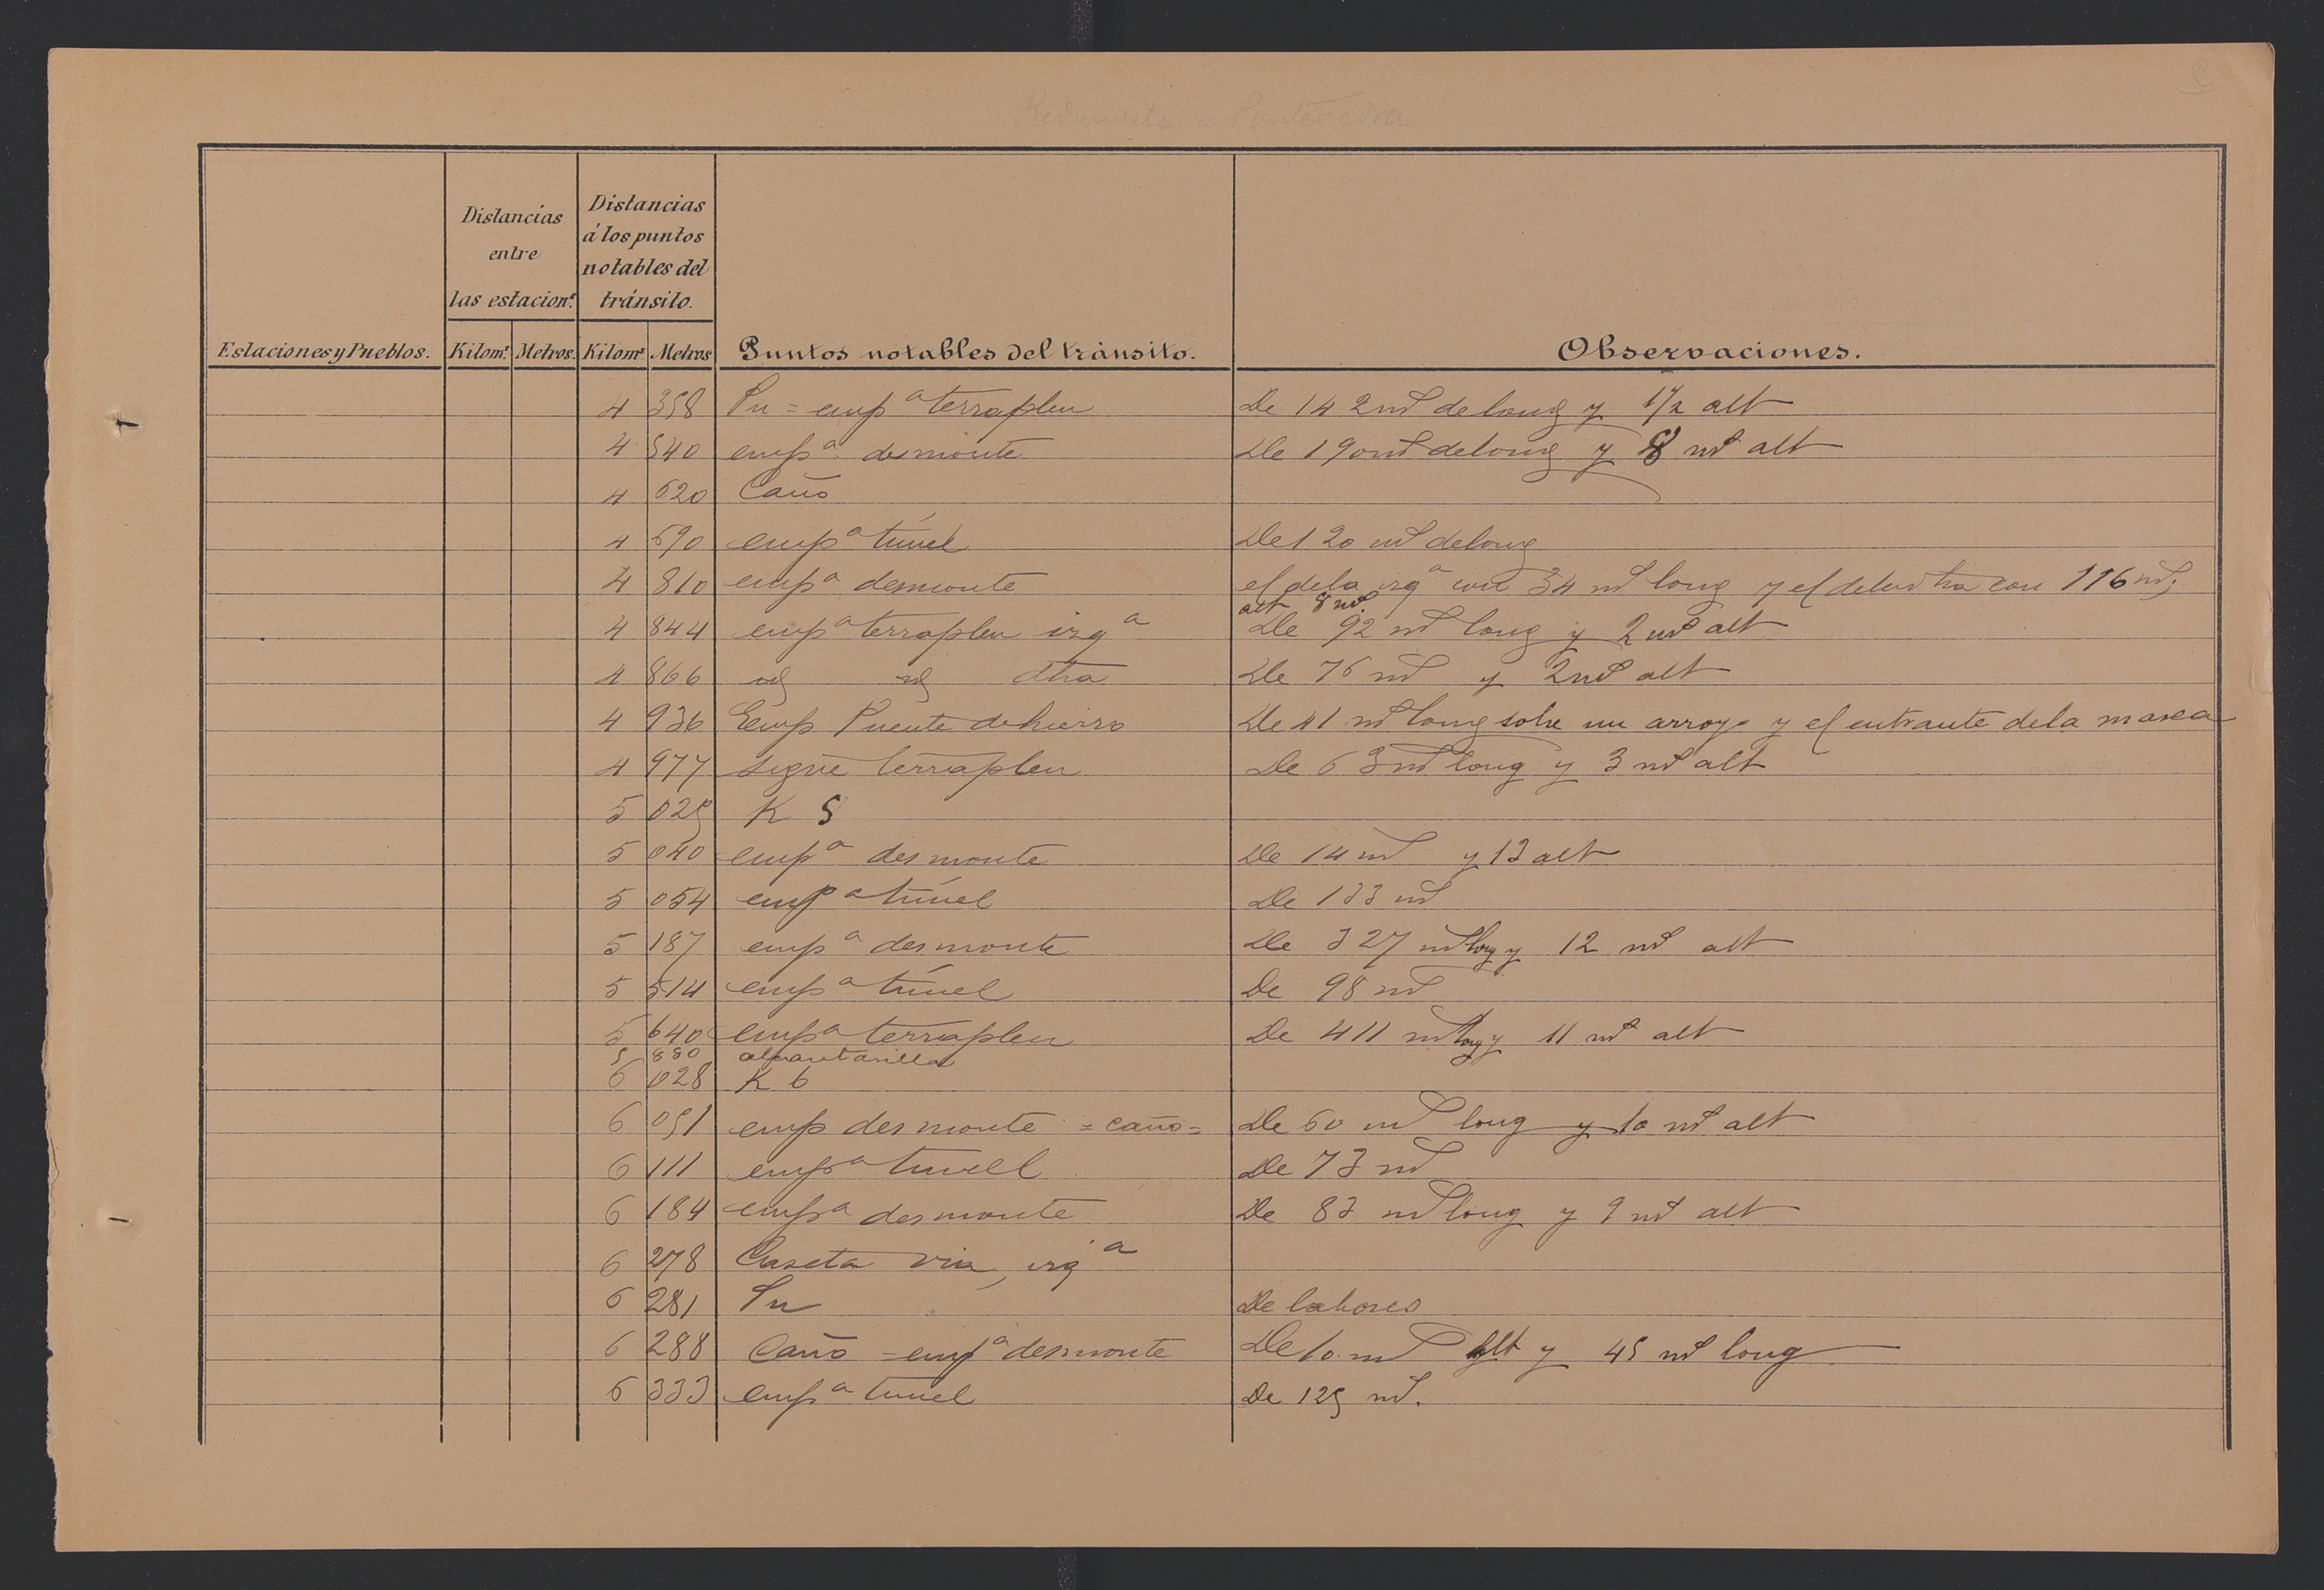 Redondela a Pontevedra
Estaciones y Pueblos.
Distancias
entre
las estacion.s
Kilom.s Metros.
Distancias
á los puntos
notables del
tránsito.
Kilom.s Metros
Puntos notables del tránsito.
Observaciones.
4 358 Pn = empª terraplen De 142 mt de long y 1 1/2 alt
4 540 empª desmonte De 190 mt de long y 8 mt alt
4 620 Caño
4 690 empª túnel De 120 mt de long
4 810 empª desmonte el de la izqª con 34 mt long y el de la dtra con 116 mt;
alt 8 mt.
4 844 empª terraplen izqª De 92 mt long y 2 mt alt
4 866 id id dtra De 76 mt y 2 mt alt
4 936 Emp Puente de hierro De 41 mt long sobre un arroyo y el entrante de la marea
4 977 sigue terraplen De 63 mt long y 3 mt alt
5 025 K 5
5 040 empª desmonte De 14 mt y 13 alt
5 054 empª túnel De 133 mt
5 187 empª desmonte De 327 mt long y 12 mt alt
5 514 empª túnel De 98 mt
5 640 empª terraplen De 411 mt long y 11 mt alt
5 880 alcantarilla
6 028 K 6
6 051 emp desmonte = caño = De 60 mt long y 10 mt alt
6 111 empª tunell De 73 mt
6 184 empª desmonte De 83 mt long y 9 mt alt
6 278 Caseta via, izqª
6 281 Pn De labores
6 288 Caño = empª desmonte De 10 mt alt y 45 mt long
6 333 empª tunel De 125 mt.